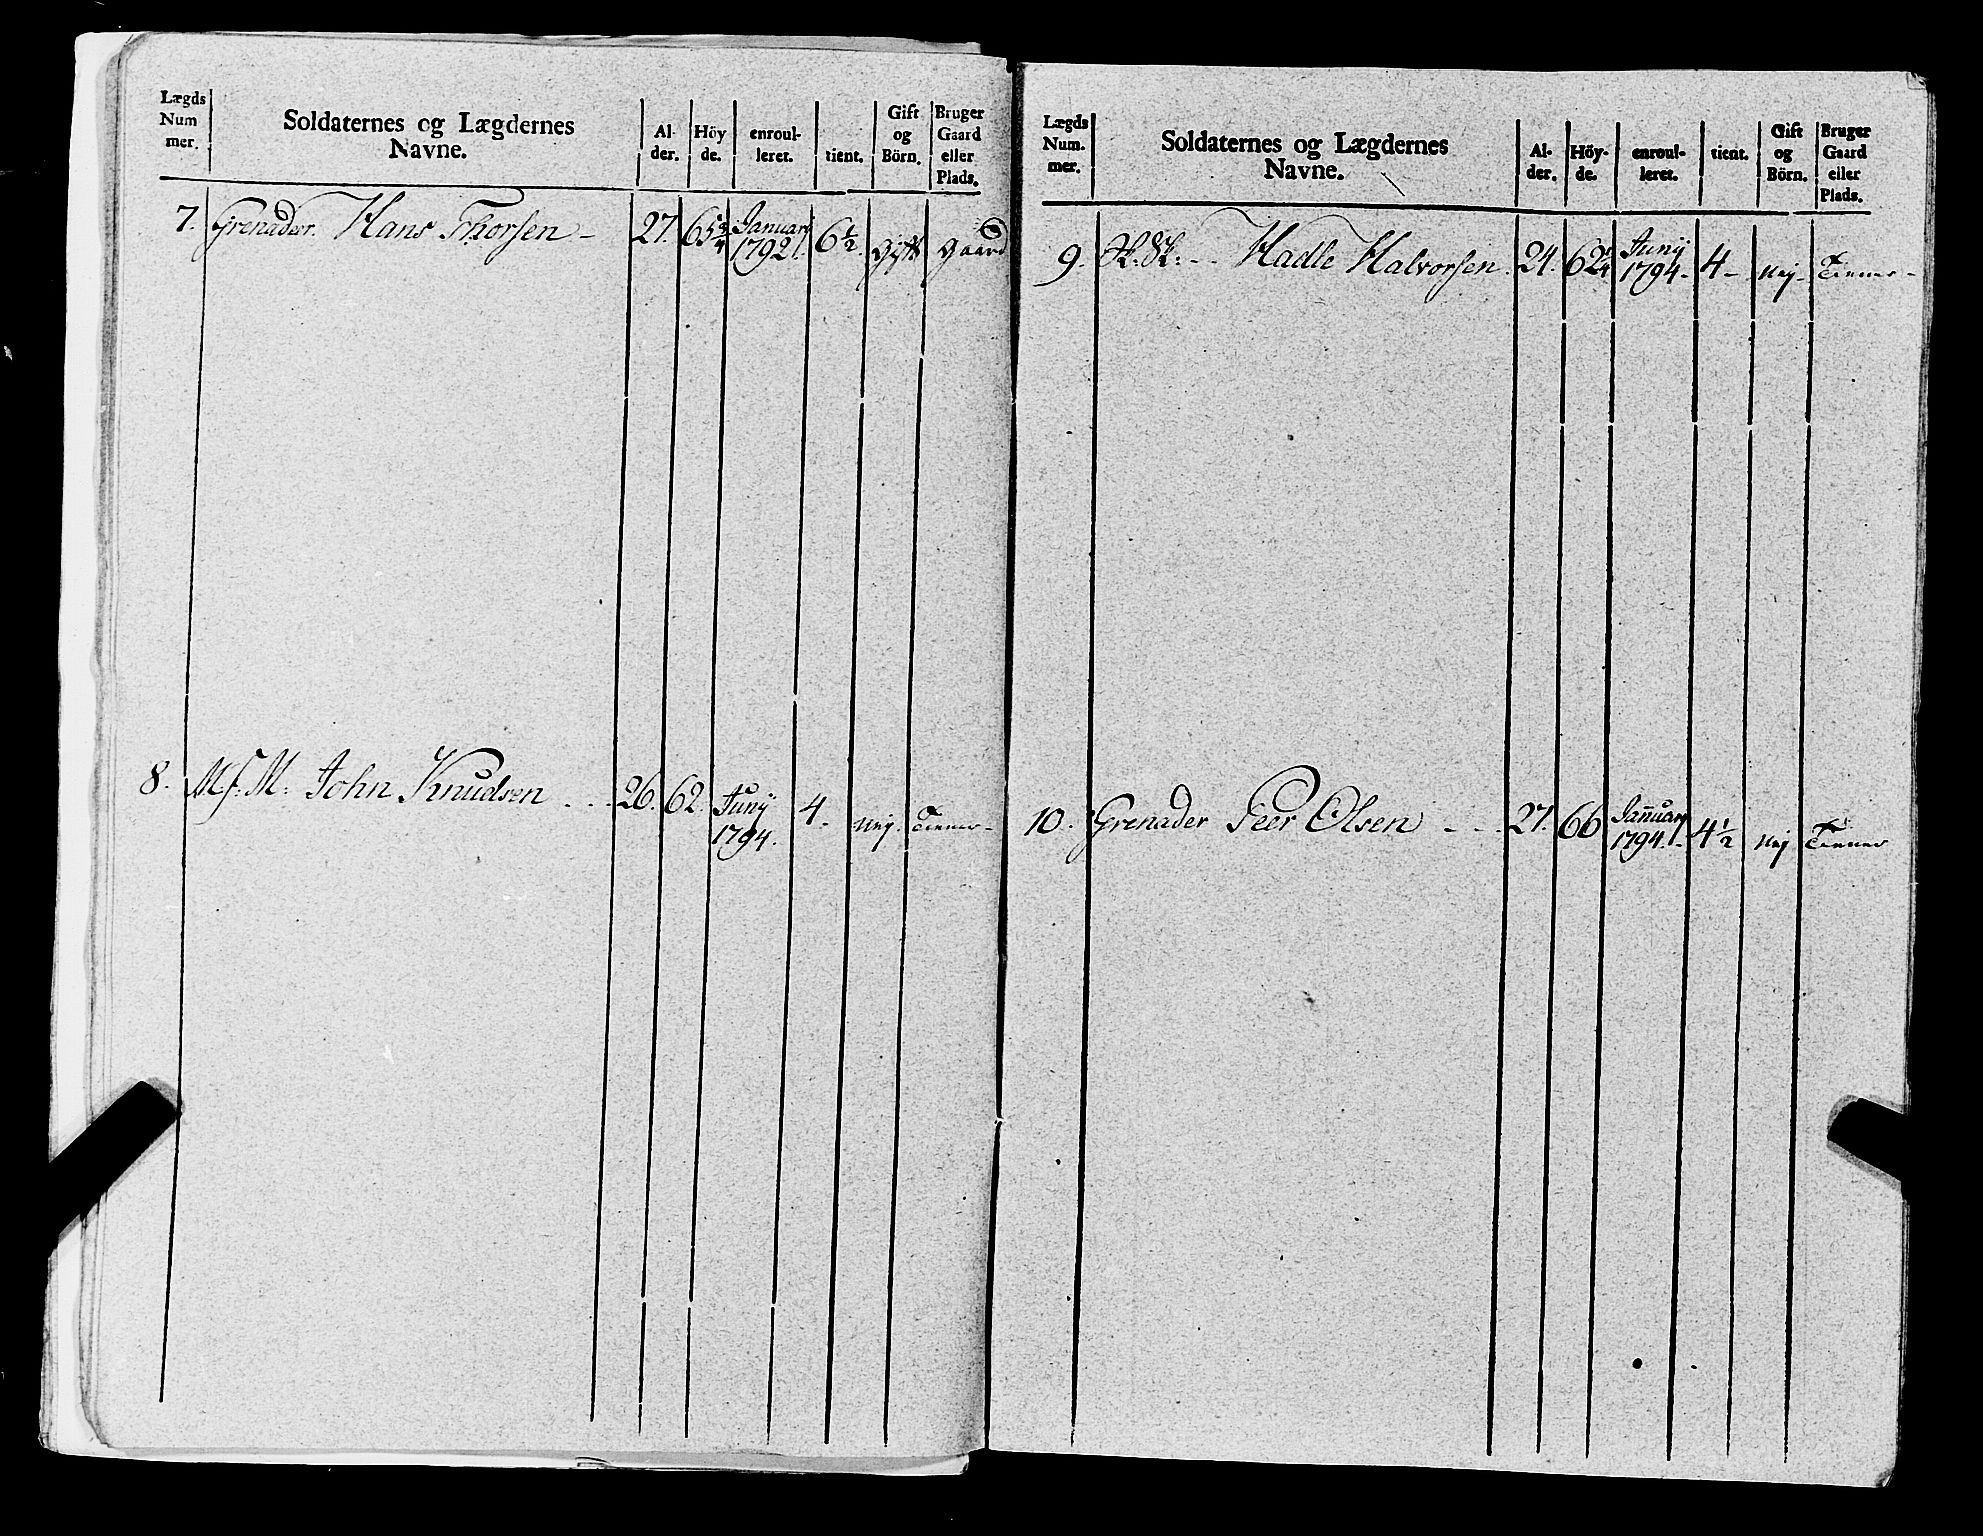 Lægds Num mer. Soldaternes og Lægdernes Navne. Al- der. Höy de. enroul- leret. tient. Gift og Börn. Bruger Gaard eller Plads.
7. Grenadeer. Hans Thorsen - 27. 65 3/4 Januarij 1792. 6 1/2. Gift Gaard
8. M: John Knudsen . . . 26. 62. Junij 1794. 4. Nej. Tiener -
Lægds Num. mer. Soldaternes og Lægdernes Navne. Al- der. Höy- de. enroul- leret. tient. Gift og Börn. Bruger Gaard eller Plads.
9. Hadle Halvorsen. 24. 62 1/4 Junij 1794 - 4 - Nej - Tiener -
10. Grenader Peer Olsen - - - 27. 66 Januarij 1794. 4 1/2 Nej Tiener